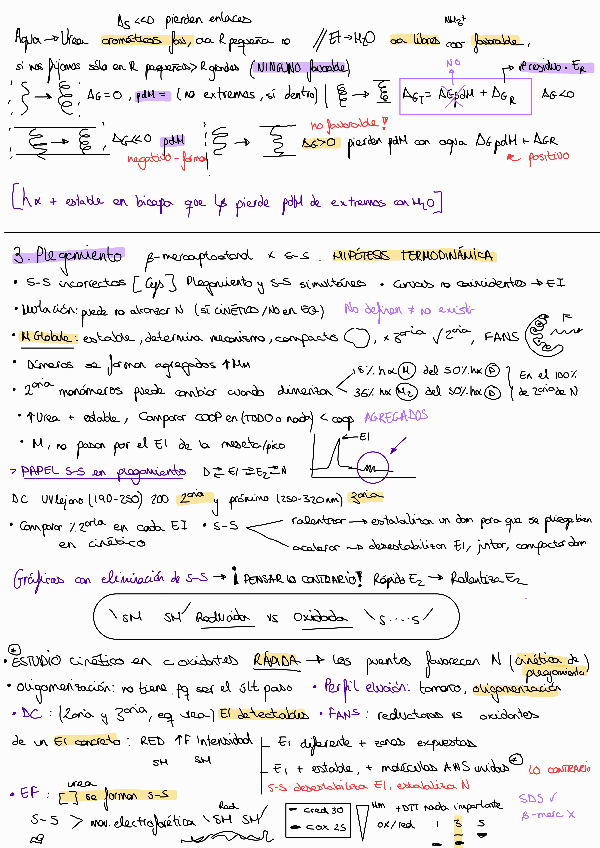 ΔS <<0 pierden enlaces
NH3+
Agua → Urea aromáticos fav, aa R pequeña no // Et → H2O aa libres cas favorable,
si nos fijamos sólo en R pequeñas > R grandes (NINGUNO favorable)
NO
residuo · ER
ΔG = 0, pdM = (no extremos, si dentro) ΔGT = ΔGpdM + ΔGR ΔG<0
no favorable!
ΔG<<0 pdM ΔG>0 pierden pdM con agua ΔG pdM + ΔGR
negativo - forma positivo
[hα + estable en bicapa que pierde pdM de extremos con H2O]
3. Plegamiento β-mercaptoetanol × S-S. HIPÓTESIS TERMODINÁMICA
• S-S incorrectos [Cys] Plegamiento y S-S simultáneos • Curvas no coincidentes → EI
• Mutación: puede no alcanzar N (sí CINÉTICO / NO en EQ) No definen ≠ no exist
• M Globule: estable, determina mecanismo, compacto, × 3aria ✓ 2aria, FANS
• Dímeros se forman agregados ↑Mm
• 2aria monómeros puede cambiar cuando dimerizan
18% hα M del 50% hα D
36% hα M2 del 50% hα D
En el 100% de 2aria de N
• ↑Urea + estable, Comparar COOP en (TODO o nada) < coop AGREGADOS
• M, no pasan por el EI de la meseta/pico
EI
> PAPEL S-S en plegamiento D ⇌ E1 ⇌ E2 ⇌ N
DC UVlejano (190-250) 200 2aria y próximo (250-320nm) 3aria
• Comparar % 2aria en cada EI • S-S
en cinético
ralentizar → estabilizan un dom para que se pliegue bien
acelerar → desestabilizan EI, juntar, compactar dom
Gráficas con eliminación de S-S → ¡PENSAR LO CONTRARIO! Rápido E2 → Ralentiza E2
SM SM Reducida vs Oxidada S....S
• ESTUDIO cinético en c oxidantes RÁPIDA → los puentes favorecen N (cinética de plegamiento)
• Oligomerización: no tiene pq ser el últ paso • Perfil elución: tamaño, oligomerización
• DC: (2aria y 3aria, eq urea) EI detectables • FANS: reductores vs oxidantes
de un EI concreto: RED ↑F intensidad
SM SM
EI diferente + zonas expuestas
EI + estable, + moléculas ANS unidas * LO CONTRARIO
S-S desestabiliza EI, estabiliza N
urea
• EF: [ ] se forman S-S
Red
S-S > mov. electroforética SM SM ✓
c red 30
c ox 25
Mm +DTT nada importante
ox/red 1 3 5
SDS ✓
β-merc X